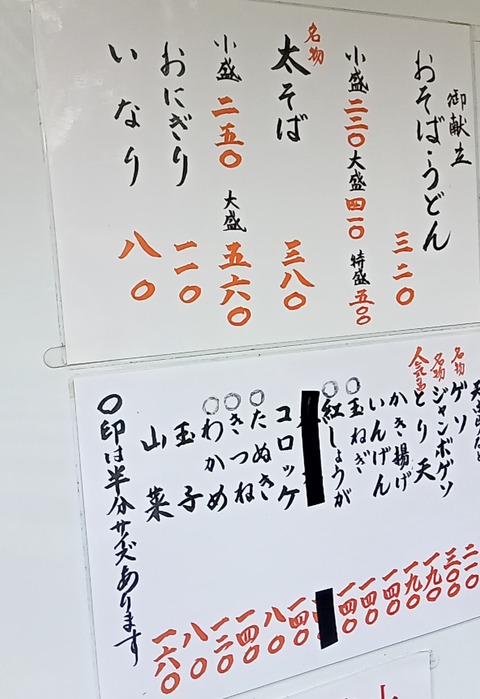 御献立
おそば・うどん 三二〇
小盛 二二〇 大盛 四一〇 特盛 五〇〇
名物 太そば 三八〇
小盛 二五〇 大盛 五六〇
おにぎり 一一〇
いなり 八〇
名物 ゲソ 二一〇
名物 ジャンボゲソ 三〇〇
とり天 一九〇
かき揚げ 一九〇
いんげん 一四〇
〇玉ねぎ 一四〇
〇紅しょうが 一四〇
コロッケ 一四〇
〇たぬき 八〇
〇きつね 一四〇
〇わかめ 一二〇
玉子 八〇
山菜 一六〇
〇印は半分サイズあります